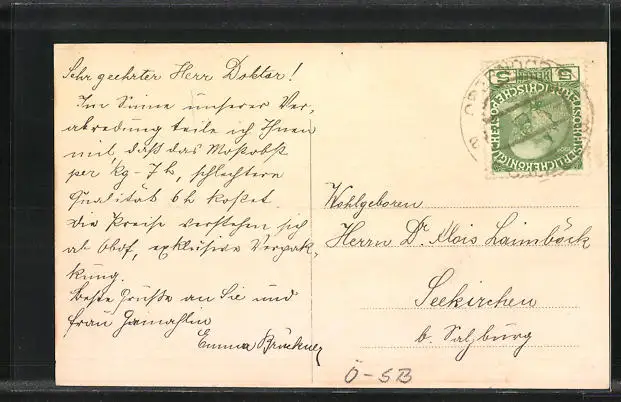 Sehr geehrter Herr Doktor!
Im Sinne unserer Ver-
abredung teile ich Ihnen
mit, daß das Mostobst
per kg – 7 h, schlechtere
Qualität 6 h kostet.
Die Preise verstehen sich
ab Obof, exklusive Verpak-
kung.
Beste Grüße an Sie und
Frau Gemahlin
Emma Brückner
Wohlgeboren
Herrn Dr. Alois Laimböck
Seekirchen
b. Salzburg
Ö-SB
5 HELLER 5